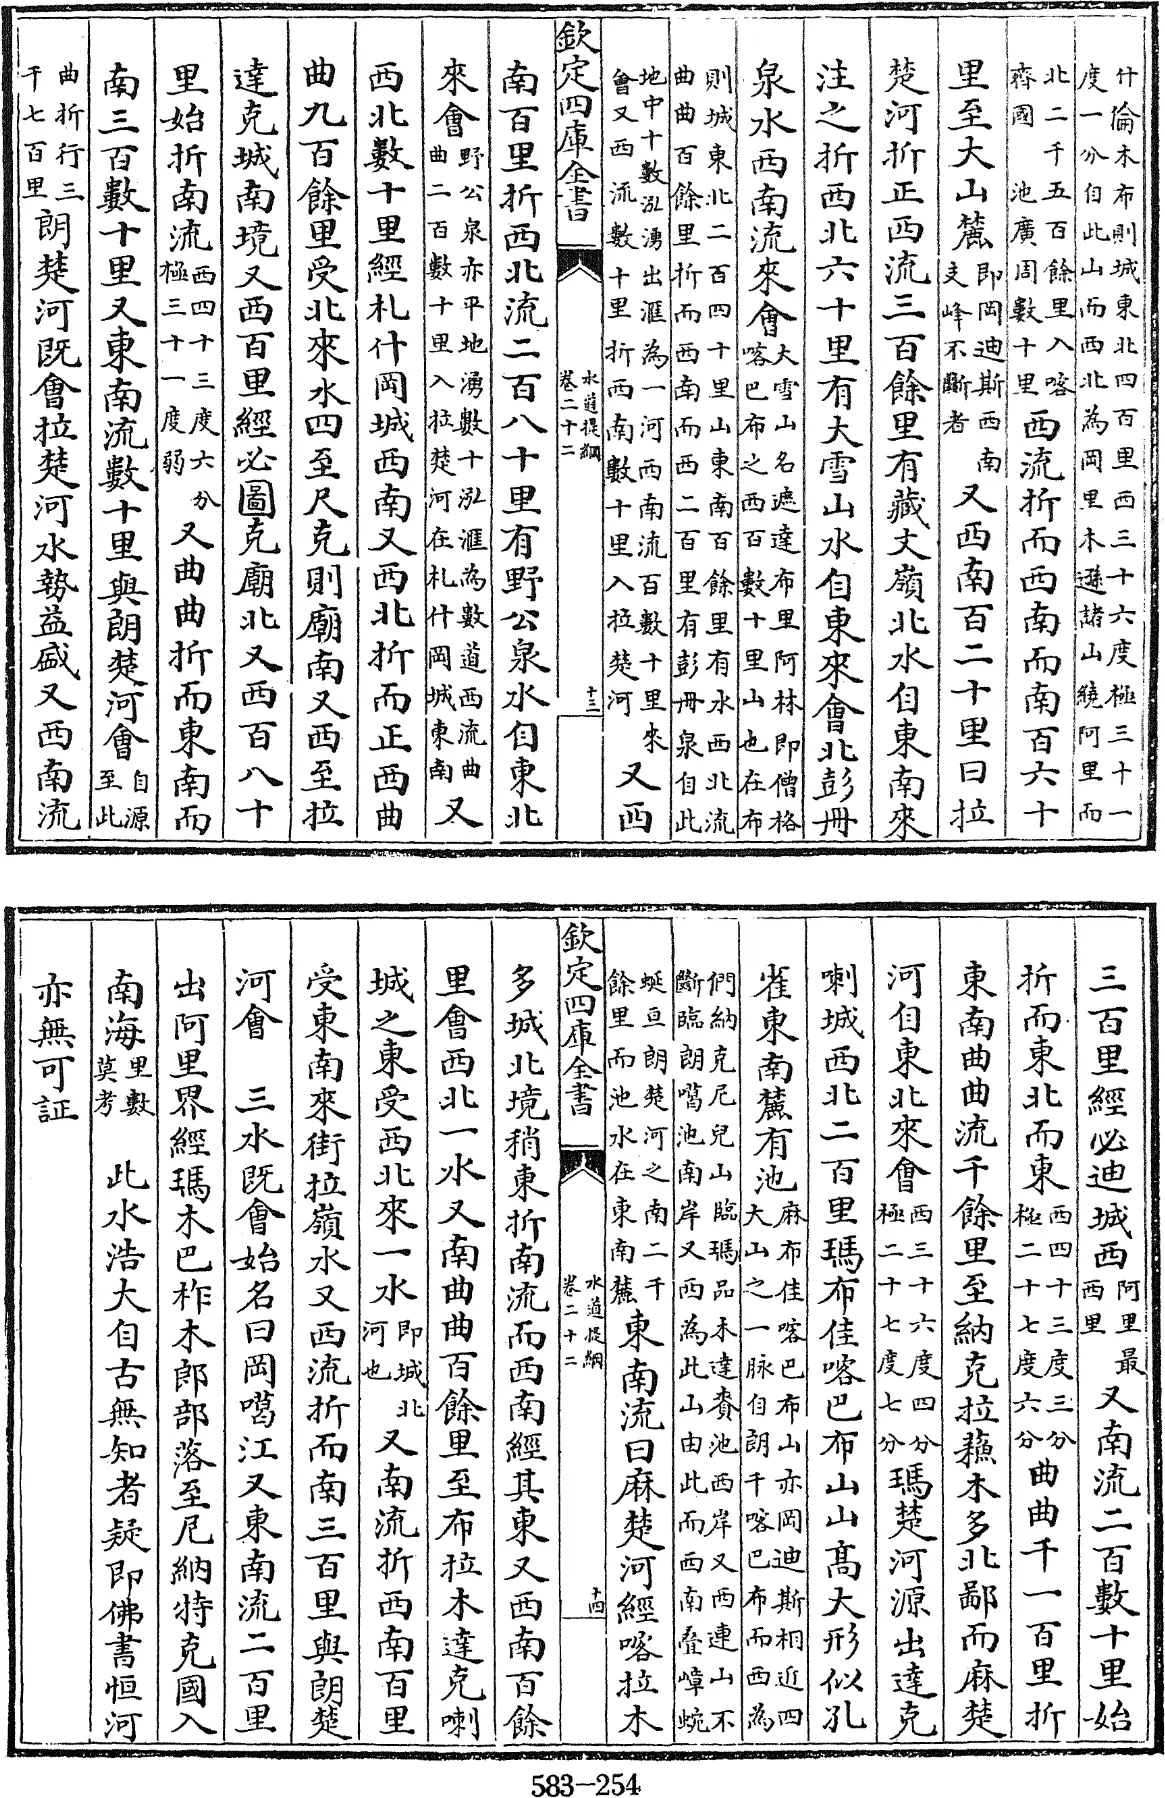 什倫木布則城東北四百里西三十六度極三十一
度一分自此山而西北為岡里木遜諸山繞阿里而
北二千五百餘里入喀齊國 池廣周數十里西流折而西南而南百六十
里至大山麓即岡迪斯西南支峰不斷者又西南百二十里曰拉
楚河折正西流三百餘里有藏文嶺北水自東南來
注之折西北六十里有大雪山水自東來會北彭冊
泉水西南流來會大雪山名遮達布里阿林即僧格喀巴布之西百數十里山也在布
則城東北二百四十里山東南百餘里有水西北流
曲曲百餘里折而西南而西二百里有彭冊泉自此
地中十數泓湧出滙為一河西南流百數十里來會又西流數十里折西南數十里入拉楚河又西
欽定四庫全書 水道提綱 卷二十二 十三
南百里折西北流二百八十里有野公泉水自東北
來會野公泉亦平地湧數十泓滙為數道西流曲曲二百數十里入拉楚河在札什岡城東南又
西北數十里經札什岡城西南又西北折而正西曲
曲九百餘里受北來水四至尺克則廟南又西至拉
達克城南境又西百里經必圖克廟北又西百八十
里始折南流西四十三度六分極三十一度弱又曲曲折而東南而
南三百數十里又東南流數十里與朗楚河會自源至此
曲折行三千七百里朗楚河既會拉楚河水勢益盛又西南流
三百里經必迪城西阿里最西里又南流二百數十里始
折而東北而東西四十三度三分極二十七度六分曲曲千一百里折
東南曲曲流千餘里至納克拉蘓木多北鄙而麻楚
河自東北來會西三十六度四分極二十七度七分瑪楚河源出達克
喇城西北二百里瑪布佳喀巴布山山高大形似孔
雀東南麓有池麻布佳喀巴布山亦岡迪斯相近四大山之一脉自朗千喀巴布而西為
們納克尼兒山臨瑪品木達賚池西岸又西連山不
斷臨朗噶池南岸又西為此山由此而西南疊嶂蜿
蜒亘朗楚河之南二千餘里而池水在東南麓東南流曰麻楚河經喀拉木
欽定四庫全書 水道提綱 卷二十二 十四
多城北境稍東折南流而西南經其東又西南百餘
里會西北一水又南曲曲百餘里至布拉木達克喇
城之東受西北來一水即城北河也又南流折西南百里
受東南來街拉嶺水又西流折而南三百里與朗楚
河會 三水既會始名曰岡噶江又東南流二百里
出阿里界經瑪木巴柞木郎部落至尼納特克國入
南海里數莫考 此水浩大自古無知者疑即佛書恒河
亦無可証
583-254